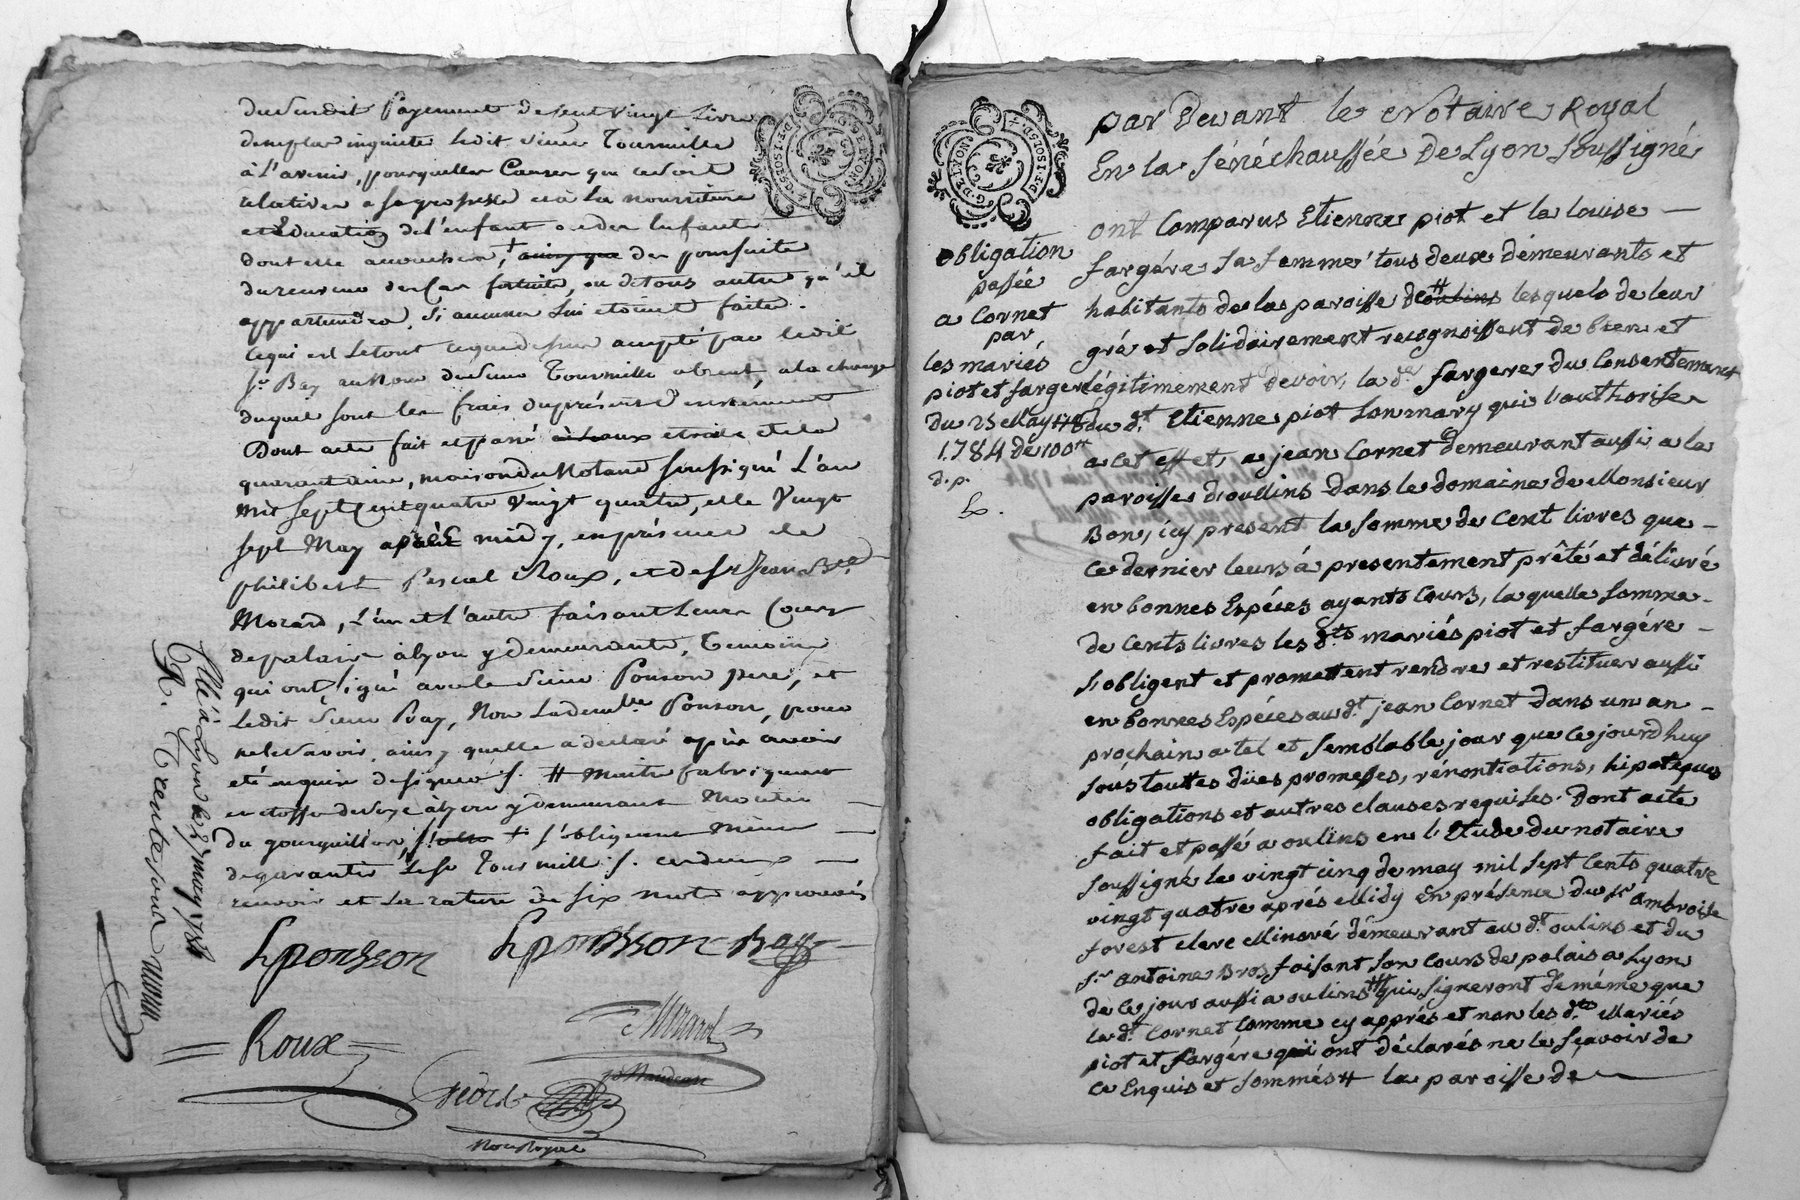 du susdit Payement de sept vingt Livres
de ne plus inquieter ledit Sieur Tourmille
à l'avenir, pour quelles Causes que ce soit
relatives a sa grossesse et à la nourriture
et Education de l'enfant ou des Enfants
dont elle accouchera, + ainsy que des poursuite
fortuits, ou de tous autre qu'il
appartiendra, si aucunes lui etoient faites.
Ce qui est le tout ce que dessus accepté par ledit
Sr. Bay au Nom du Sieur Tourmille absent, a la charge
duquel sont les frais du présent
Dont acte fait et passé
quarantaine, maison du Notaire soussigné L'an
mil sept Cent quatre Vingt quatre, et le Vingt
sept May après midy, en présence de
philibert Pascal Roux, et de Sr Jean Bte
Morard, L'un et l'autre faisant leurs Cours
de palais à Lyon y demeurants, Temoins
qui ont signé avec le Sieur Ponson pere, et
Ledit Sieur Bay, Non Lademlle Ponson, pour
ne le savoir, ainsy quelle a declaré après avoir
eté enquise de signer ./. # maitre fabriquant
en etoffe de soye a Lyon y demeurant Montée
du gourguillon, + s'obligeant même
de garantir Le Sr Tourmille ./.
renvoir et la rature de six mots approuvés
Lponsson Lponsson Bay
Morard
Roux
Not. Royal
Clé à Lyon le 27 may 1784
R. Trente sous
G. DE LYON
D.F. 1 SOL 5 D.
par Devant le Notaire Royal
En la sénéchaussée De Lyon soussigné
ont Comparus Etienne piot et la louise
fargére sa femme tous deux demeurants et
habitants de la paroisse d'oulins # lesquels de leur
gré et solidairement recognoissent de bien et
légitimement devoir, la de. fargere du Consentement
du dt. Etienne piot son mary qui l'authorise
a cet effet, a jean Cornet demeurant aussi a la
paroisse d'oullins dans le domaine de Monsieur
Bon, icy present la somme de Cent livres que
ce dernier leurs á presentement prêté et délivré
en bonnes Espéces ayants Cours, la quelle somme
de Cents livres les dts mariés piot et fargére
s'obligent et promettent rendre et restituer aussi
en bonnes Espéces au dt. jean Cornet dans un an
prochain a tel et semblable jour que ce jourd'huy
sous touttes dües promesses, rénontiations, hipoteques
obligations et autres clauses requises. Dont acte
fait et passé a oulins en l'Etude du notaire
soussigné le vingt cinq de may mil sept Cents quatre
vingt quatre aprés Midy En présence du sr ambroise
forest clerc Minoré démeurant au dt. oulins et du
Sr antoine Bros faisant son Cours de palais a Lyon
de ce jour aussi a oulins qui signeront de même que
le dt. Cornet Comme cy apprés et non les dts Mariés
piot et fargére qui ont déclarés ne le sçavoir de
ce Enquis et sommés # la paroisse de
obligation
passée
a Cornet
par
les mariés
piot et fargere
du 25 May
1784 de 100tt
d.p.